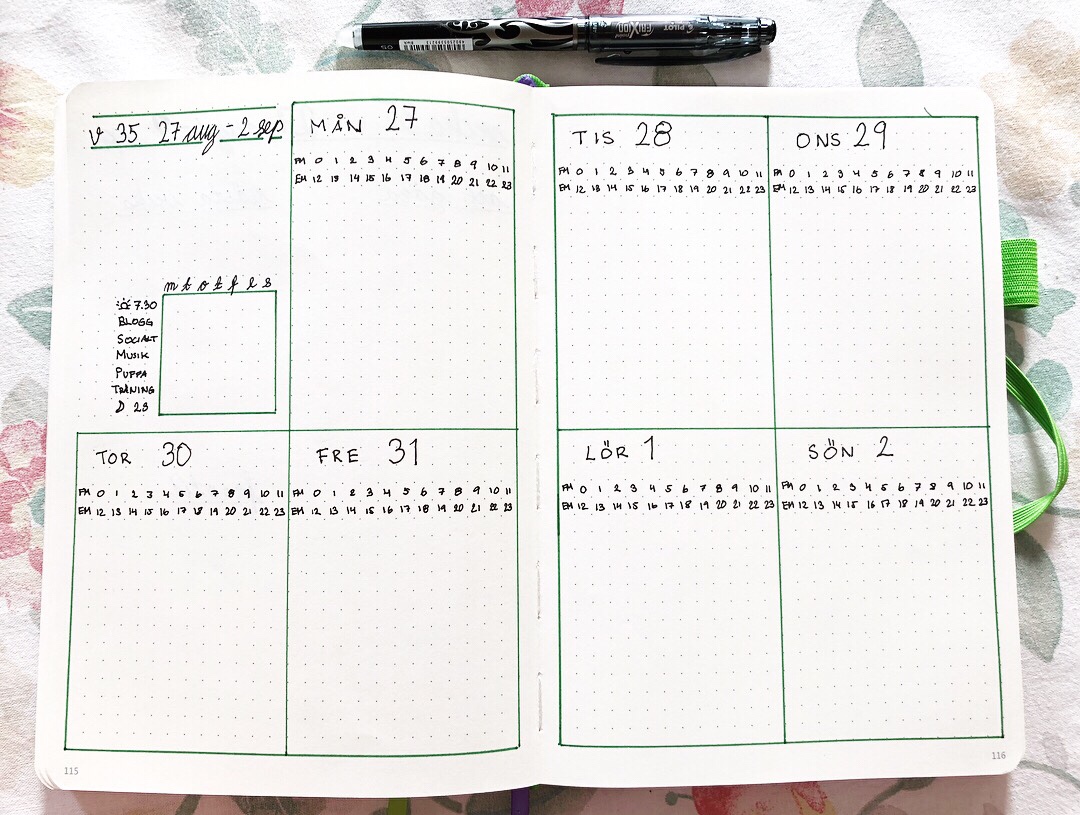 PILOT FRIXION
05
V 35. 27 aug - 2 sep
MÅN 27
FM 0 1 2 3 4 5 6 7 8 9 10 11
EM 12 13 14 15 16 17 18 19 20 21 22 23
m t o t f l s
7.30
BLOGG
SOCIALT
MUSIK
PUFFA
TRÄNING
D 23
TOR 30
FM 0 1 2 3 4 5 6 7 8 9 10 11
EM 12 13 14 15 16 17 18 19 20 21 22 23
FRE 31
FM 0 1 2 3 4 5 6 7 8 9 10 11
EM 12 13 14 15 16 17 18 19 20 21 22 23
115
TIS 28
FM 0 1 2 3 4 5 6 7 8 9 10 11
EM 12 13 14 15 16 17 18 19 20 21 22 23
ONS 29
FM 0 1 2 3 4 5 6 7 8 9 10 11
EM 12 13 14 15 16 17 18 19 20 21 22 23
LÖR 1
FM 0 1 2 3 4 5 6 7 8 9 10 11
EM 12 13 14 15 16 17 18 19 20 21 22 23
SÖN 2
FM 0 1 2 3 4 5 6 7 8 9 10 11
EM 12 13 14 15 16 17 18 19 20 21 22 23
116